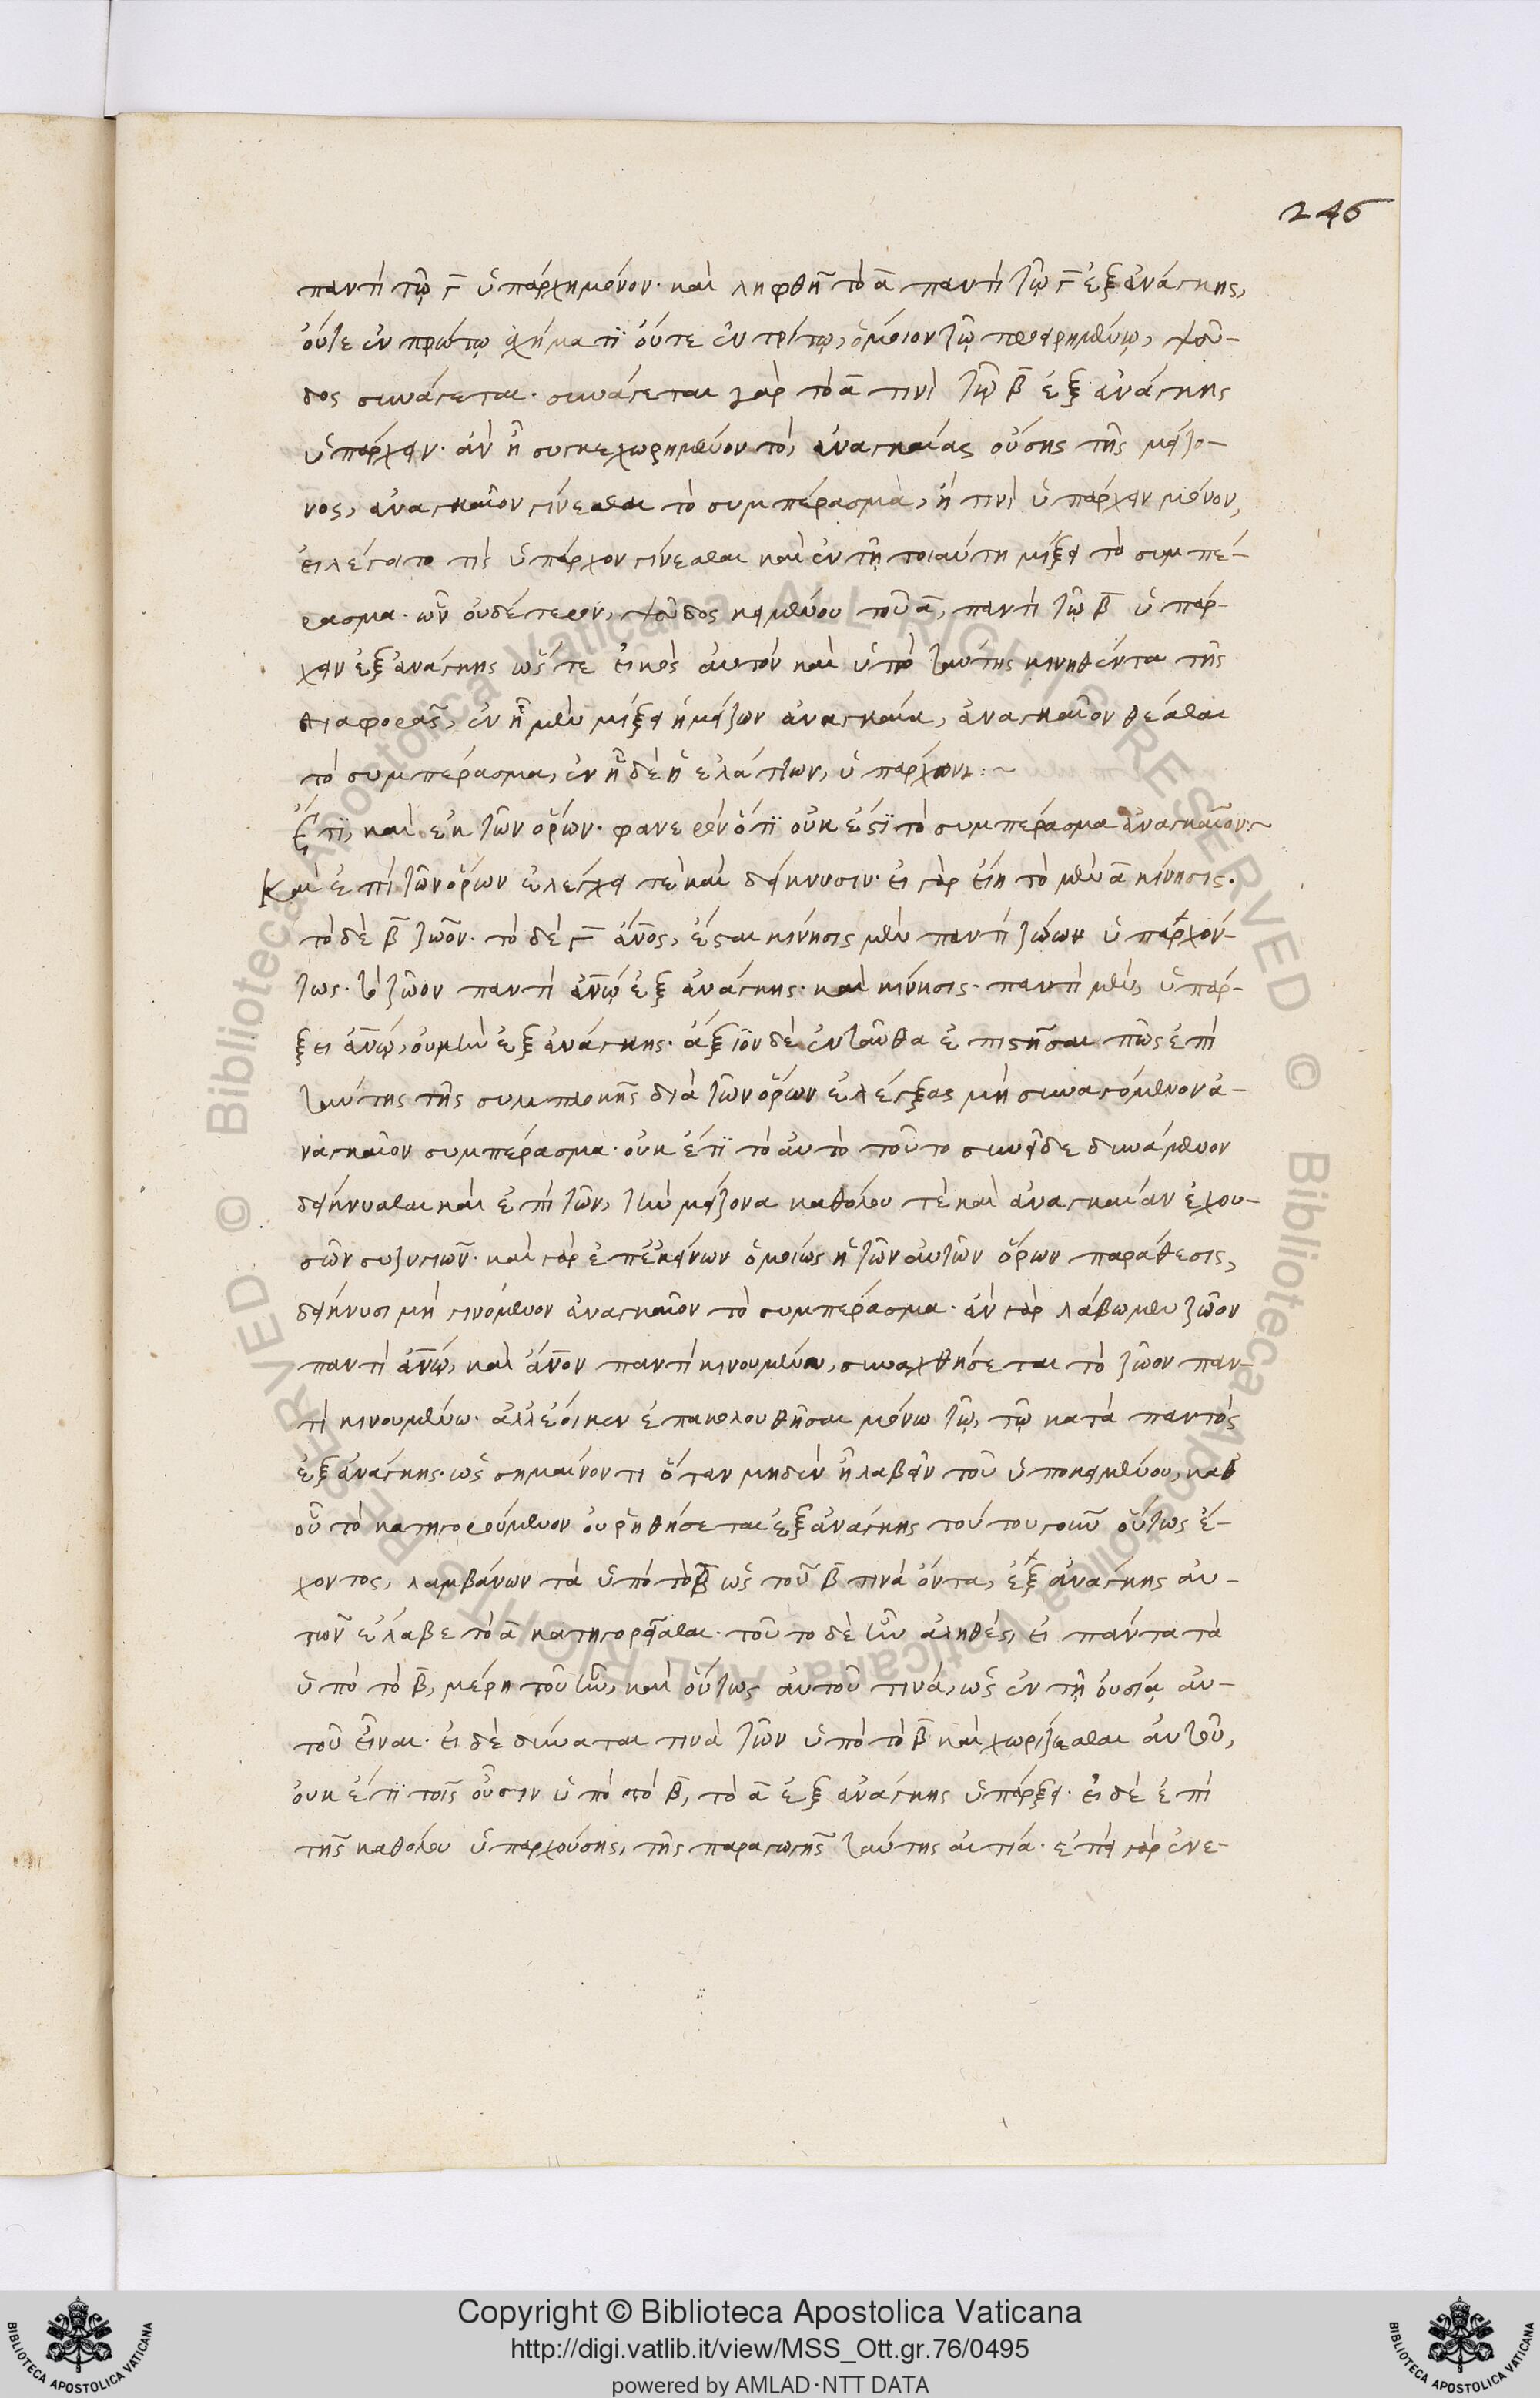 246
παντὶ τῷ γ ὑπάρχη μόνον· καὶ ληφθῆ τὸ α παντὶ τῷ γ ἐξ ἀνάγκης,
οὔτε ἐν πρώτῳ σχήματι οὔτε ἐν τρίτῳ, ὅμοιον τῷ προειρημένῳ, ψεῦ-
δος συνάγεται· συνάγεται γὰρ τὸ α τινὶ τῷ β ἐξ ἀνάγκης
ὑπάρχειν· ἂν ἦ συγκεχωρημένον τὸ, ἀναγκαίας οὔσης τῆς μείζο-
νος, ἀναγκαῖον γίνεσθαι τὸ συμπέρασμα, ἢ τινὶ ὑπάρχειν μόνον,
εἰ λέγοιτο τις ὑπάρχον γίνεσθαι καὶ ἐν τῇ τοιαύτη μίξει τὸ συμπέ-
ρασμα· ὧν οὐδέτερον, ψεῦδος κειμένου τοῦ α, παντὶ τῷ β ὑπάρ-
χειν ἐξ ἀνάγκης ὥστε εἰκὸς αὐτὸν καὶ ὑπὸ ταύτης κινηθέντα τῆς
διαφορᾶς, ἐν ἧ μὲν μίξει ἡ μείζων ἀναγκαία, ἀναγκαῖον θέσθαι
τὸ συμπέρασμα, ἐν ἧ δὲ ἡ ἐλάττων, ὑπάρχον:~
Ἔτι, καὶ ἐκ τῶν ὅρων· φανερὸν ὅτι οὐκ ἔστι τὸ συμπέρασμα ἀναγκαῖον:~
Καὶ ἐπὶ τῶν ὅρων ἐλέγχει τὲ καὶ δείκνυσιν· εἰ γὰρ εἴη τὸ μὲν α κίνησις·
τὸ δὲ β ζῶον· τὸ δὲ γ ἄνος, ἔσται κίνησις μὲν παντὶ ζώων ὑπαρχόν-
τως· τὸ ζῶον παντὶ ἀνῳ ἐξ ἀνάγκης· καὶ κίνησις· παντὶ μὲν, ὑπάρ-
ξει ἀνῳ, οὐ μὴν ἐξ ἀνάγκης· ἄξιον δὲ ἐνταῦθα ἐπιστῆσαι πῶς ἐπὶ
ταύτης τῆς συμπλοκῆς διὰ τῶν ὅρων ἐλέγξας μὴ συναγόμενον ἀ-
ναγκαῖον συμπέρασμα· οὐκ ἔτι τὸ αὐτὸ τοῦτο συνεῖδε δυνάμενον
δείκνυσθαι καὶ ἐπὶ τῶν, τὴν μείζονα καθόλου τὲ καὶ ἀναγκαίαν ἐχου-
σῶν συζυγιῶν· καὶ γὰρ ἐπ ἐκείνων ὁμοίως ἡ τῶν αὐτῶν ὅρων παράθεσις,
δείκνυσι μὴ γινόμενον ἀναγκαῖον τὸ συμπέρασμα· ἂν γὰρ λάβωμεν ζῶον
παντὶ ἀνῳ, καὶ ἄνον παντὶ κινουμένω, συναχθήσεται τὸ ζῶον παν-
τὶ κινουμένω· ἀλλ ἔοικεν ἐπακολουθῆσαι μόνω τῷ, τῷ κατὰ παντὸς
ἐξ ἀνάγκης· ὡς σημαίνοντι ὅταν μηδὲν ἦ λαβεῖν τοῦ ὑποκειμένου, καθ
οὗ τὸ κατηγορούμενον οὐ ῥηθήσεται ἐξ ἀνάγκης τούτου γοῦν οὕτως ἔ-
χοντος, λαμβάνων τὰ ὑπὸ τὸ β ὡς τοῦ β τινὰ ὄντα, ἐξ ἀνάγκης αὐ-
τῶν ἔλαβε τὸ α κατηγορεῖσθαι· τοῦτο δὲ ἦν ἀληθές, εἰ πάντα τὰ
ὑπὸ τὸ β, μέρη τοῦ ἦν, καὶ οὕτως αὐτοῦ τινά, ὡς ἐν τῇ οὐσίᾳ αὐ-
τοῦ εἶναι· εἰ δὲ δύναται τινὰ τῶν ὑπὸ τὸ β καὶ χωρίζεσθαι αὐτοῦ,
οὐκ ἔτι τοῖς οὖσιν ὑπὸ τὸ β, τὸ α ἐξ ἀνάγκης ὑπάρξει· εἰ δὲ ἐπὶ
τῆς καθόλου ὑπαρχούσης, τῆς παραγωγῆς ταύτης αἰτία· ἐπεὶ γὰρ ἐνε-
Copyright © Biblioteca Apostolica Vaticana
http://digi.vatlib.it/view/MSS_Ott.gr.76/0495
powered by AMLAD·NTT DATA